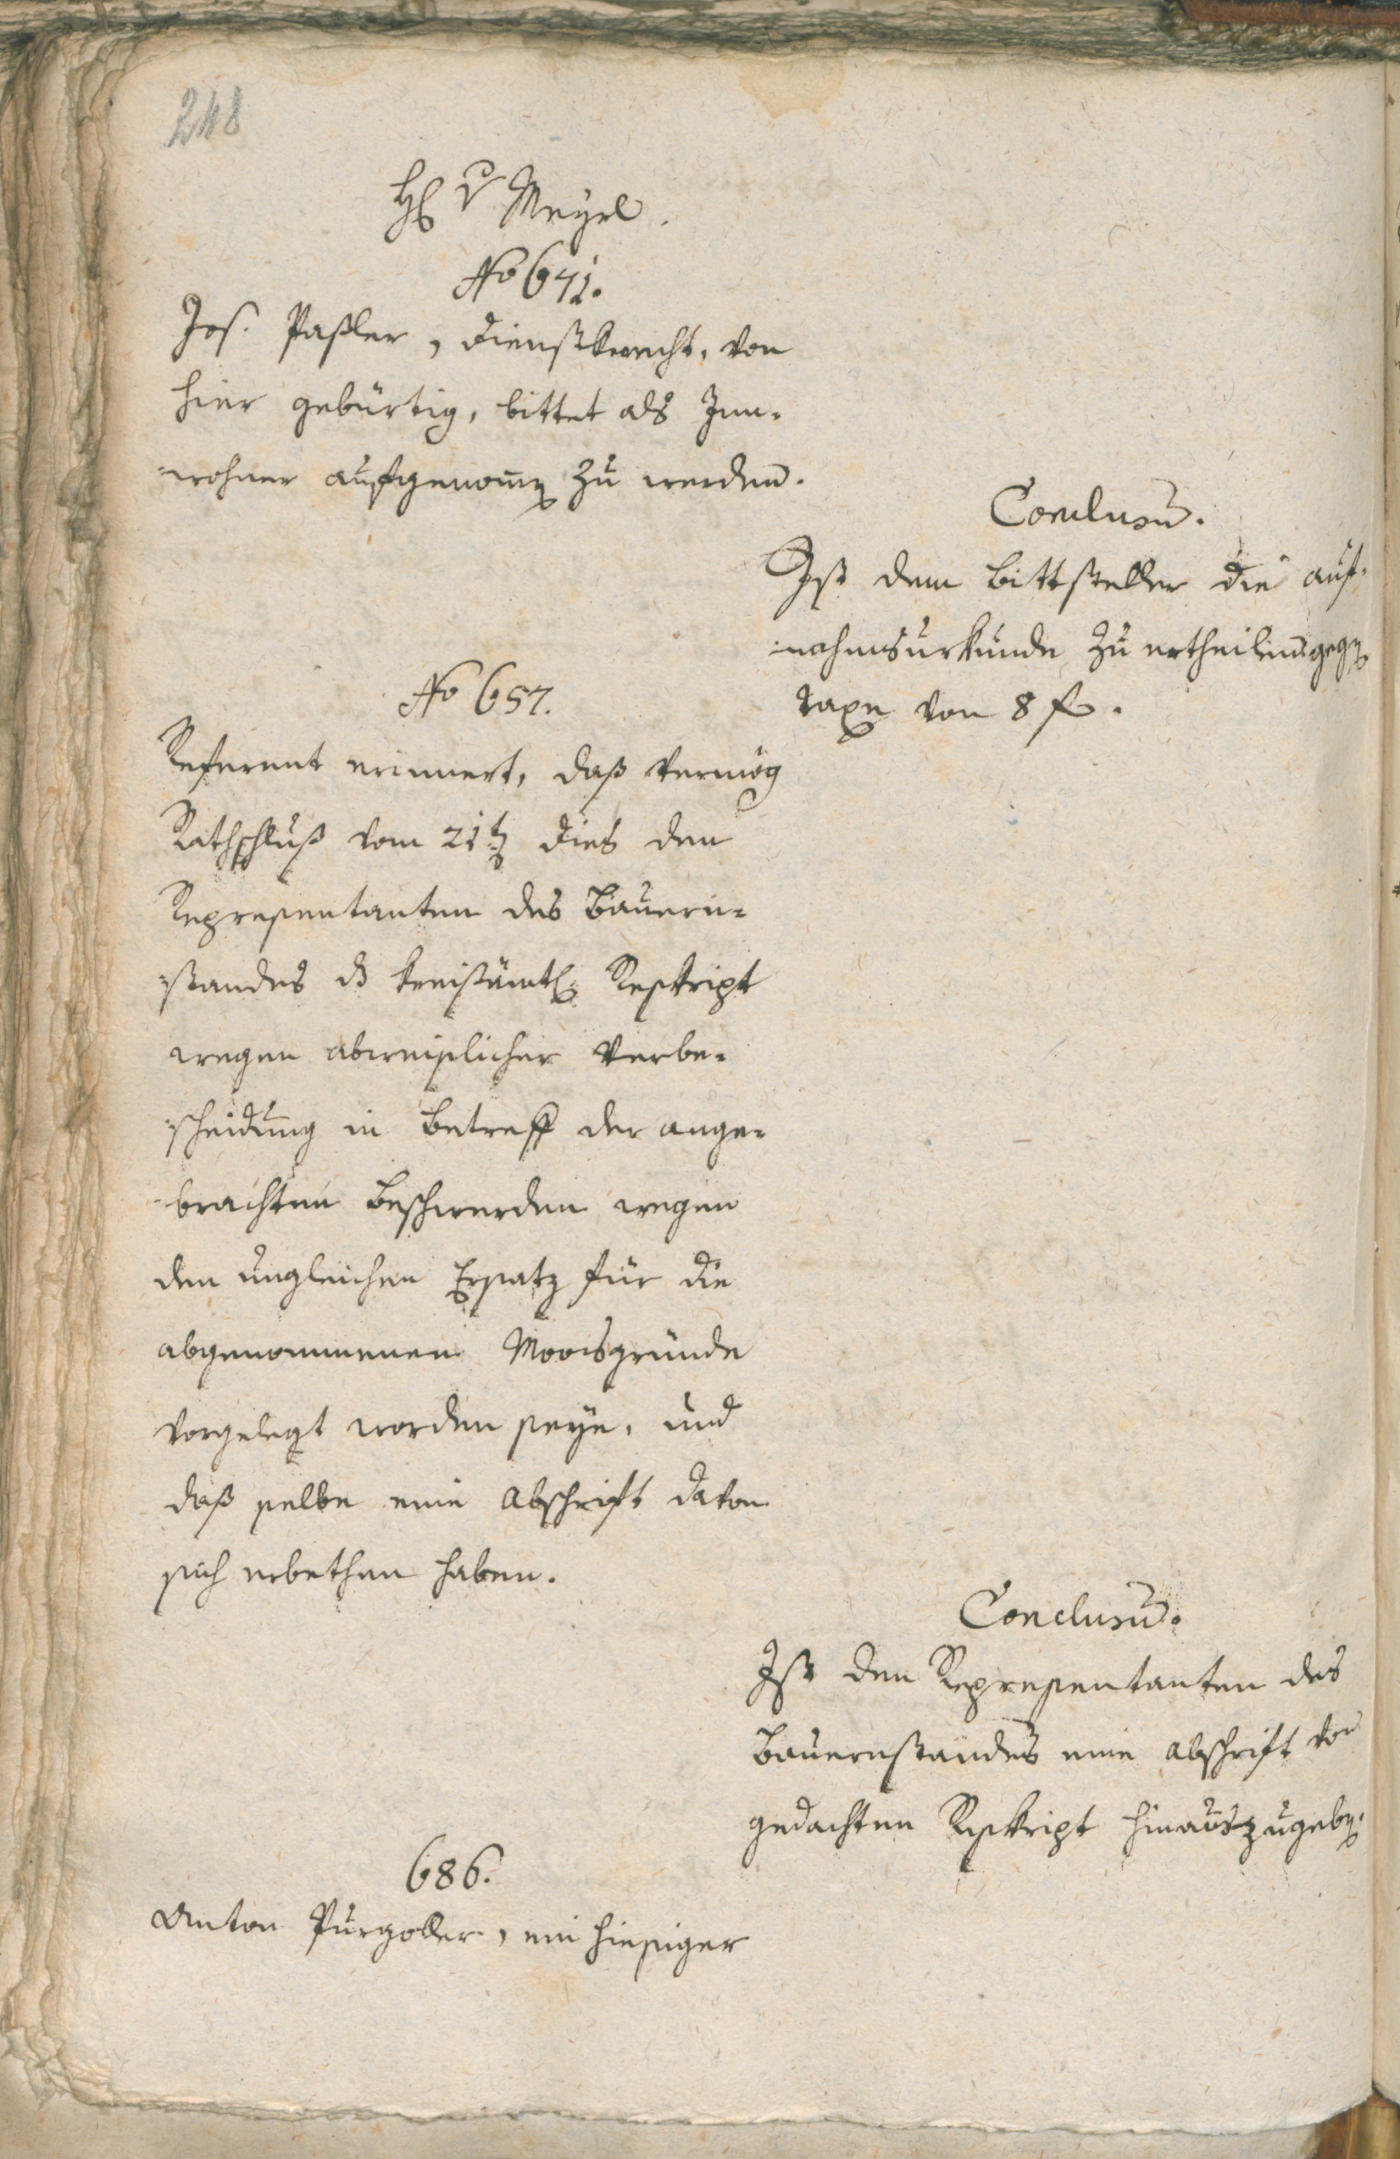 248
H. v Mayrl.
No 641.
Jos. Paßler, Dienstknecht, von
hier gebürtig, bittet als Inn-
wohner aufgenommen zu werden.
Conclusum.
Ist dem Bittsteller die auf-
nahmsurkunde zu ertheilen gegen
taxe von 8 f.
No 657.
Referent erinnert, daß vermög
Rathschluß vom 21ten dies den
Representanten des Bauern-
standes das kreisämtl. Reskript
wegen abweislicher Verbe-
scheidung in Betreff der ange-
brachten Beschwerden wegen
den ungleichen Ersatz für die
abgenommenen Moosgründe
vorgelegt worden seye, und
daß selbe eine Abschrift davon
sich erbethen haben.
Conclusum.
Ist den Representanten des
Bauernstandes eine abschrift von
gedachten Reskript hinauszugeben.
686.
Anton Purgoller, ein hiesiger